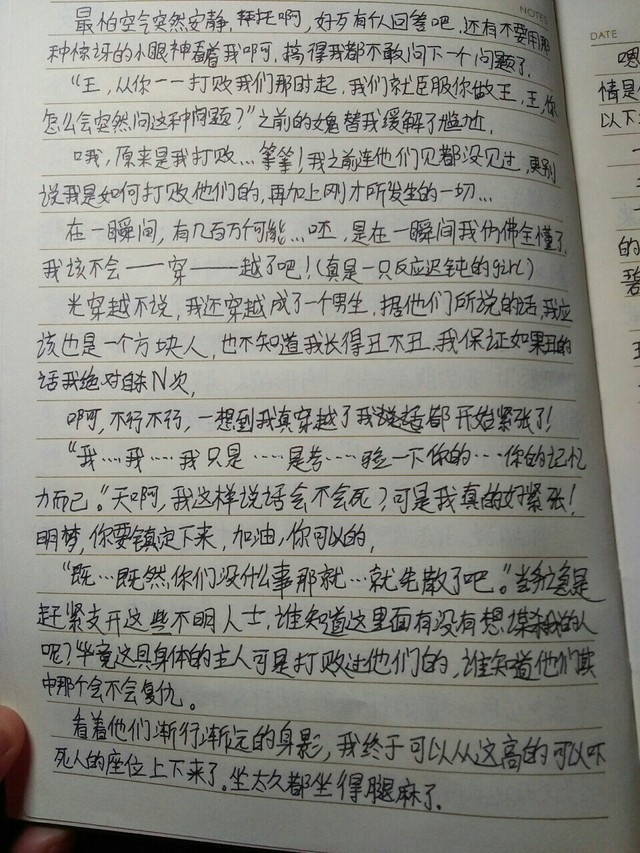 NOTES
最怕空气突然安静,拜托啊,好歹有个人回答吧,还有不要用那
种惊讶的小眼神看着我啊可,搞得我都不敢问下一个问题了,
“王,从你一一打败我们那时起,我们就臣服你做王,王,你
怎么会突然问这种问题?”之前的女鬼替我缓解了尴尬,
哦,原来是我打败…等等!我之前连他们见都没见过,更别
说我是如何打败他们的,再加上刚才所发生的一切…
在一瞬间,有几百万个可能…呸,是在一瞬间我仿佛全懂了,
我该不会——穿——越了吧!(真是一只反应迟钝的girl)
光穿越不说,我还穿越成了一个男生,据他们所说的话,我应
该也是一个方块人,也不知道我长得丑不丑,我保证如果丑的
话我绝对自杀N次,
啊可,不行不行,一想到我真穿越了我说话都开始紧张了!
“我……我……我只是……是考……验一下你的……你的记忆
力而已。”天啊,我这样说话会不会死?可是我真的好紧张!
明梦,你要镇定下来,加油,你可以的,
“既…既然你们没什么事那就…就先散了吧。”当务之急是
赶紧支开这些不明人士,谁知道这里面有没有想谋杀我的人
呢?毕竟这具身体的主人可是打败过他们的,谁知道他们其
中那个会不会复仇。
看着他们渐行渐远的身影,我终于可以从这高的可以吓
死人的座位上下来了。坐太久都坐得腿麻了.
DATE
嗯
情是
以下
的
碧